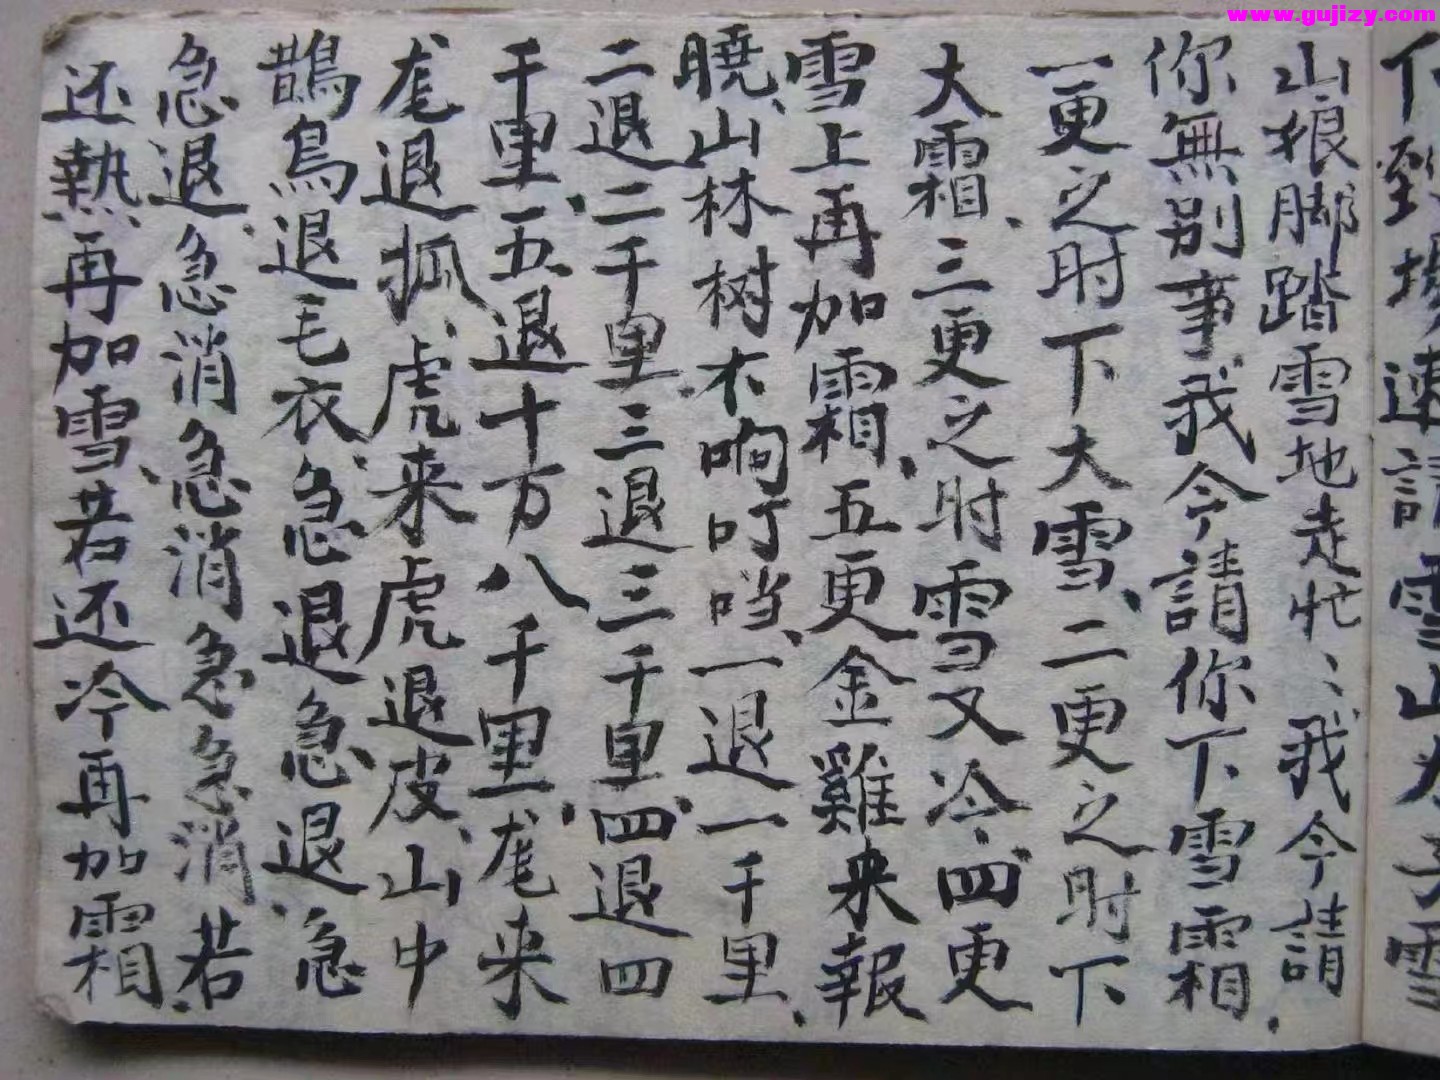 www.gujizy.com
下到場速請雪山太子雪
山狼脚踏雪地走忙、我今請
你無别事我今請你下雪霜
一更之时下大雪、二更之时下
大霜、三更之时雪又冷、四更
雪上再加霜、五更金雞来報
曉、山林树木响叮当、一退一千里、
二退二千里、三退三千里、四退四
千里、五退十万八千里、龙来
龙退狐、虎来虎退皮、山中
鵲鳥退毛衣、急退急退、急
急退、急消急消急急消、若
还熱再加雪、若还冷再加霜